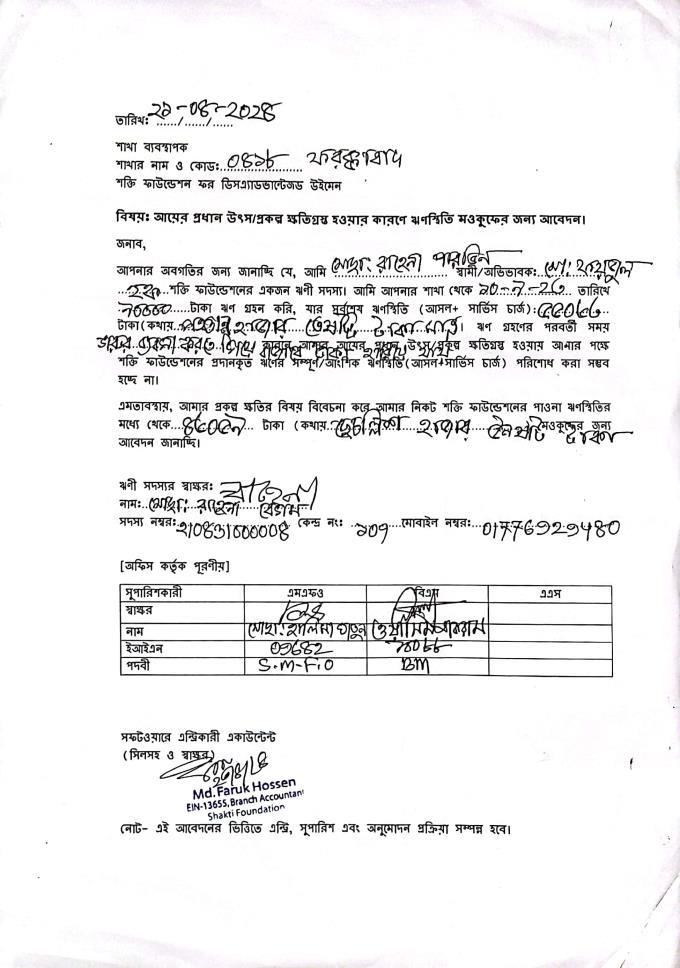 তারিখ: ২৯-০৪-২০২৪
শাখা ব্যবস্থাপক
শাখার নাম ও কোড: ০৪৯৮ ফরক্কাবাদ
শক্তি ফাউন্ডেশন ফর ডিসএ্যাডভান্টেজড উইমেন
বিষয়: আয়ের প্রধান উৎস/প্রকল্প ক্ষতিগ্রস্থ হওয়ার কারণে ঋণস্থিতি মওকুফের জন্য আবেদন।
জনাব,
আপনার অবগতির জন্য জানাচ্ছি যে, আমি মোছা: রাহেনা পারভিন স্বামী/অভিভাবক: মো:
হক শক্তি ফাউন্ডেশনের একজন ঋণী সদস্য। আমি আপনার শাখা থেকে তারিখে
৭০০০০ টাকা ঋণ গ্রহন করি, যার সর্বশেষ ঋণস্থিতি (আসল+ সার্ভিস চার্জ):
টাকা (কথায় হাজার টাকা মাত্র। ঋণ গ্রহণের পরবর্তী সময়
ব্যবসা করতে গিয়ে কারনে আমার আয়ের প্রধান উৎস/প্রকল্প ক্ষতিগ্রস্থ হওয়ায় আমার পক্ষে
শক্তি ফাউন্ডেশনের প্রদানকৃত ঋণের সম্পূর্ণ/আংশিক ঋণস্থিতি(আসল+সার্ভিস চার্জ) পরিশোধ করা সম্ভব
হচ্ছে না।
এমতাবস্থায়, আমার প্রকল্প ক্ষতির বিষয় বিবেচনা করে আমার নিকট শক্তি ফাউন্ডেশনের পাওনা ঋণস্থিতির
মধ্যে থেকে টাকা (কথায় হাজার টাকা মওকুফের জন্য
আবেদন জানাচ্ছি।
ঋণী সদস্যর স্বাক্ষর: রাহেনা
নাম: মোছা: রাহেনা বেগম
সদস্য নম্বর: ২১০৪৩১০০০০০৪ কেন্দ্র নং: ১০৭ মোবাইল নম্বর: 01776929480
[অফিস কর্তৃক পূরণীয়]
সুপারিশকারী এমএফও বিএম এএস
স্বাক্ষর
নাম মোছা: হালিমা খাতুন ওয়াসিম আকরাম
ইআইএন 09682
পদবী S.M-F.O BM
সফটওয়ারে এন্ট্রিকারী একাউন্টেন্ট
(সিলসহ ও স্বাক্ষর)
Md. Faruk Hossen
EIN-13655, Branch Accountant
Shakti Foundation
নোট- এই আবেদনের ভিত্তিতে এন্ট্রি, সুপারিশ এবং অনুমোদন প্রক্রিয়া সম্পন্ন হবে।